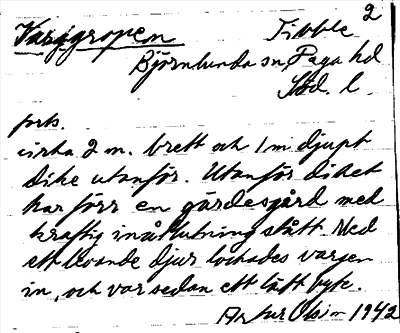 2
Vargropen Tibble
Björnlunda sn, Daga hd
Söd. l.
forts.
cirka 2 m. brett och 1 m djupt
dike utanför. Utanför diket
har förr en gärdesgård med
kraftig inåtlutning stått. Med
ett levande djur lockades vargen
in, och var sedan ett lätt byte.
Artur 1942